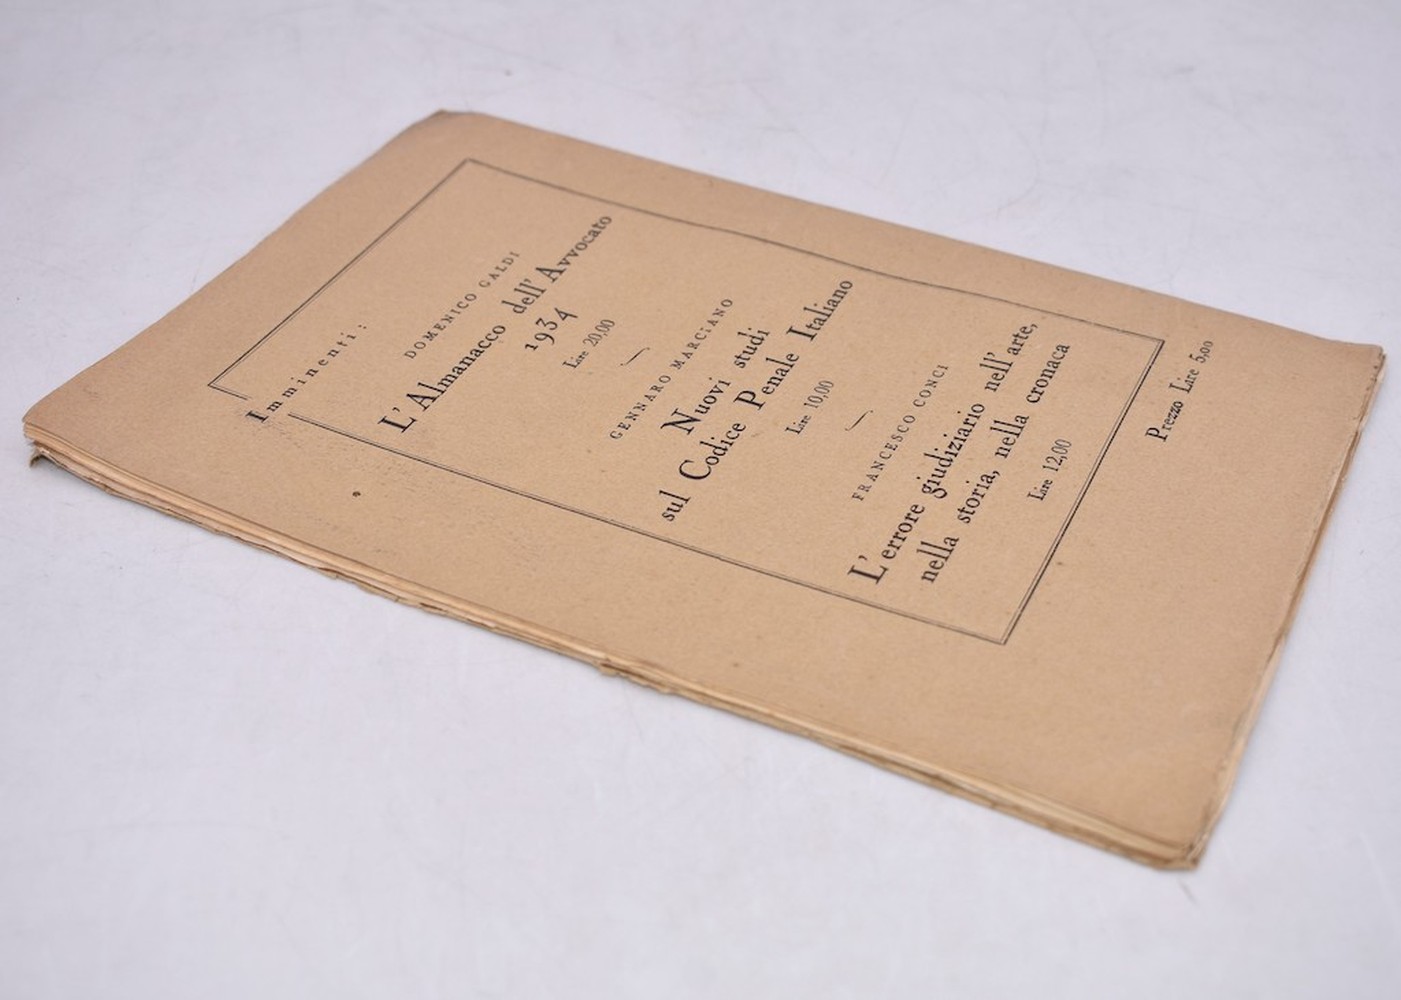 Imminenti:
DOMENICO GALDI
L'Almanacco dell'Avvocato
1934
Lire 20,00
GENNARO MARCIANO
Nuovi studi
sul Codice Penale Italiano
Lire 10,00
FRANCESCO CONCI
L'errore giudiziario nell'arte,
nella storia, nella cronaca
Lire 12,00
Prezzo Lire 5,00